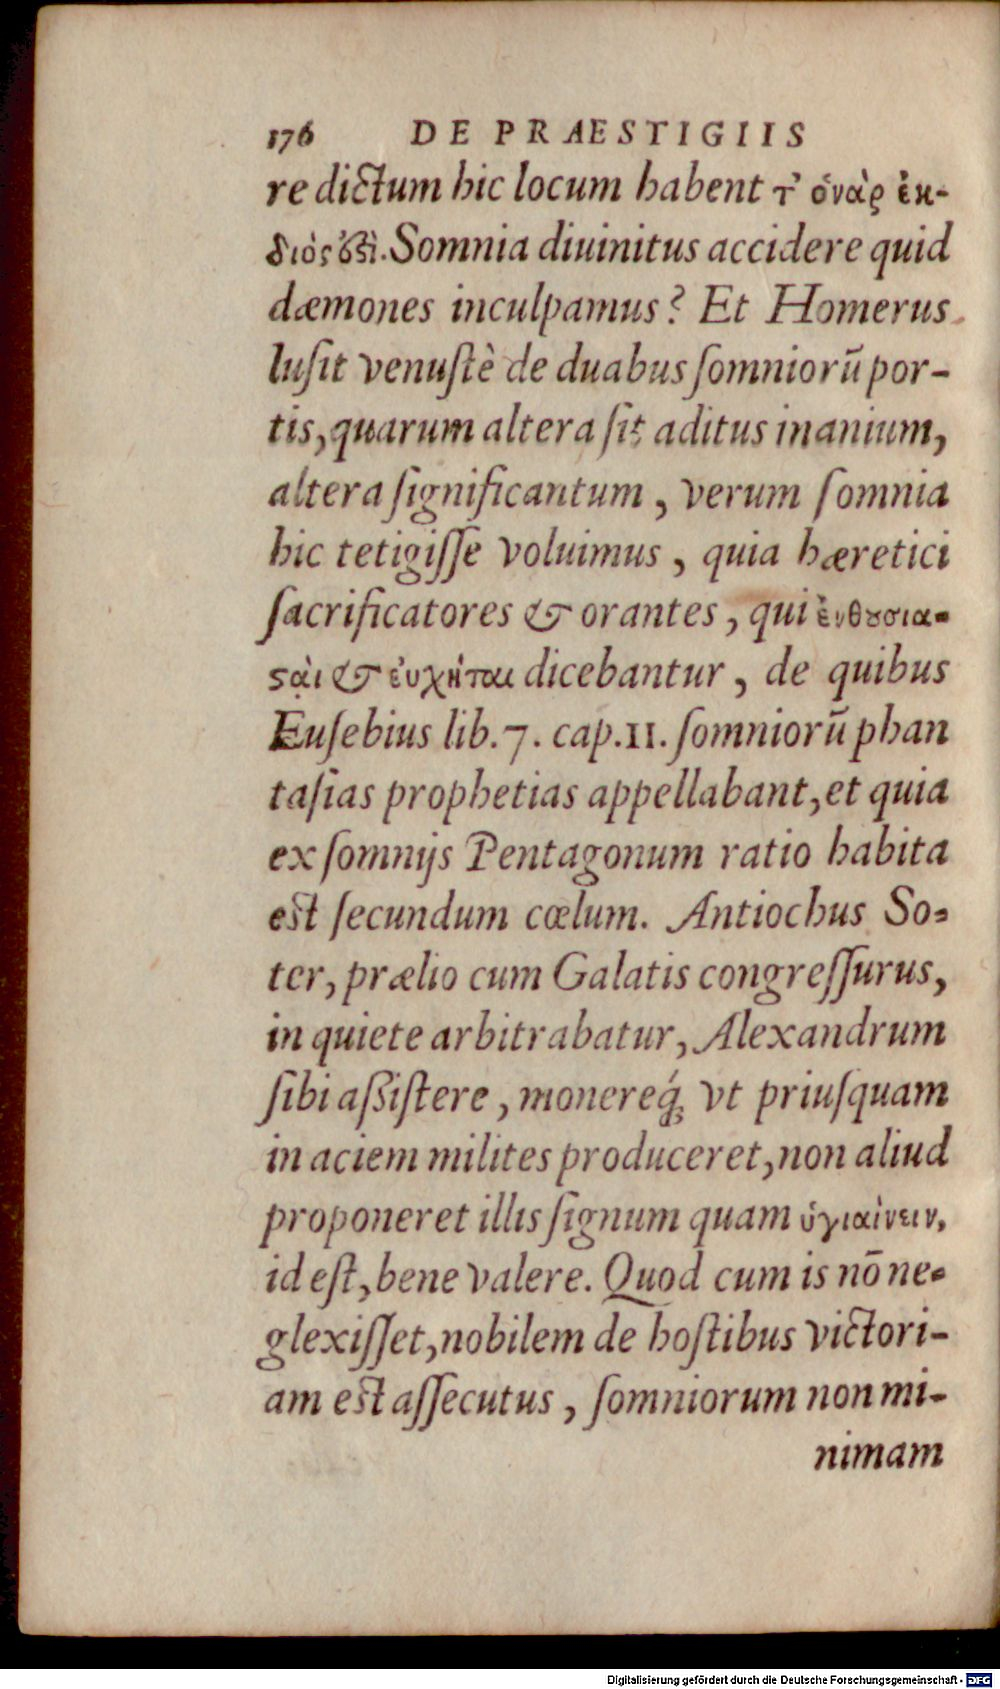 176 DE PRAESTIGIIS
re dictum hic locum habent τ' ὀναρ ἐκ-
διὸς ἐστὶ. Somnia diuinitus accidere quid
dæmones inculpamus? Et Homerus
luſit venuſtè de duabus ſomniorū por-
tis, quarum altera ſit aditus inanium,
altera ſignificantum, verum ſomnia
hic tetigiſſe voluimus, quia hæretici
ſacrificatores & orantes, qui ἐνθουσια-
ςαὶ & ἐυχῆται dicebantur, de quibus
Euſebius lib. 7. cap. 11. ſomniorū phan
taſias prophetias appellabant, et quia
ex ſomnijs Pentagonum ratio habita
est ſecundum cœlum. Antiochus So-
ter, prælio cum Galatis congreſſurus,
in quiete arbitrabatur, Alexandrum
ſibi aßiſtere, monereq́; vt priuſquam
in aciem milites produceret, non aliud
proponeret illis ſignum quam ὑγιαίνειν,
id eſt, bene valere. Quod cum is nō ne-
glexiſſet, nobilem de hoſtibus victori-
am est aſſecutus, ſomniorum non mi-
nimam
Digitalisierung gefördert durch die Deutsche Forschungsgemeinschaft - DFG